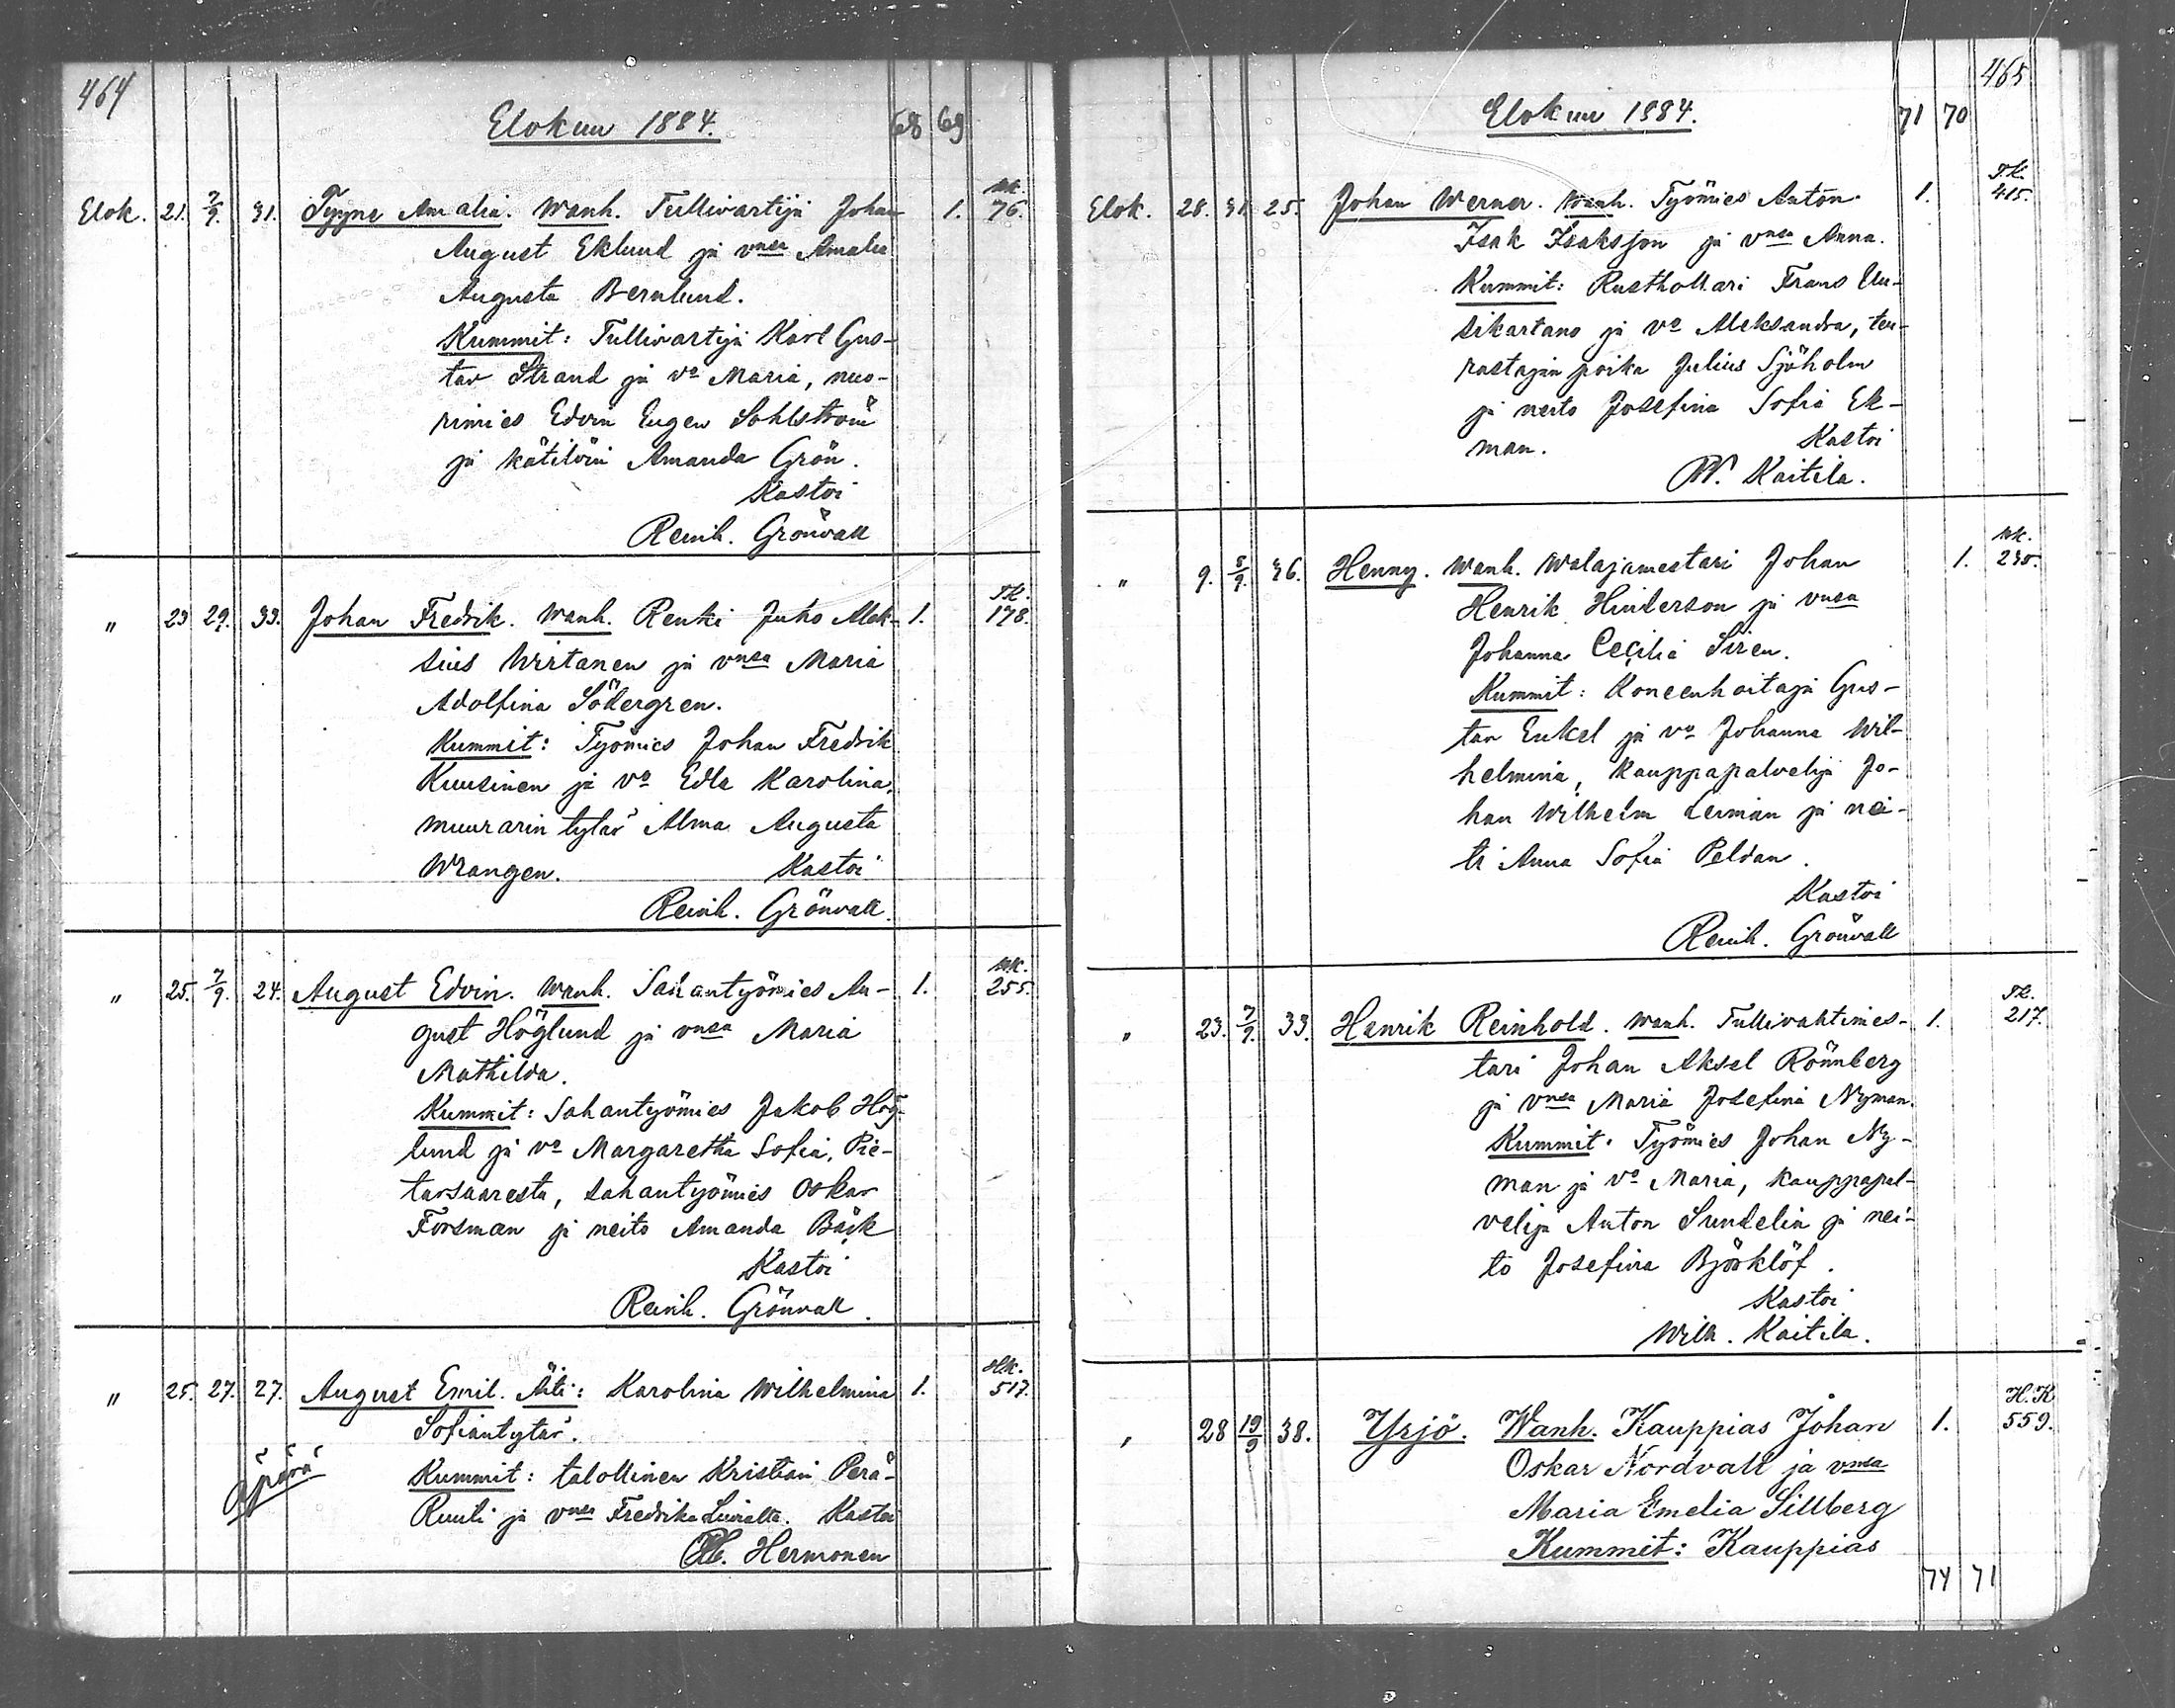 464
Elokuu 1884. 68 69
Elok. 21. 7/9. 31. Tyyne Amalia. Wanh. Tullivartija Johan 1. WK. 76.
August Eklund ja vnsa Amalia
Augusta Bernlund.
Kummit: Tullivartija Karl Gus-
tav Strand ja vo Maria, nuo-
rimies Edvin Eugen Sohlström
ja kätilöin Amanda Grön.
Kastoi
Reinh. Grönvall
" 23 29. 33. Johan Fredrik. Wanh. Renki Juho Alek- 1. TK. 178.
sius Wirtanen ja vnsa Maria
Adolfina Södergren.
Kummit: Työmies Johan Fredrik
Kuusinen ja vo Edla Karolina,
muurarin tytär Alma Augusta
Wrangen. Kastoi
Reinh. Grönvall.
" 25. 7/9. 24. August Edvin. Wanh. Sahantyömies Au- 1. WK. 255.
gust Höglund ja vnsa Maria
Mathilda.
Kummit: Sahantyömies Jakob Hög-
lund ja vo Margaretha Sofia, Pie-
tarsaaresta, sahantyömies Oskar
Forsman ja neito Amanda Bäck
Kastoi
Reinh. Grönvall.
" 25. 27. 27. August Emil. Äiti: Karolina Wilhelmina 1. HK. 517.
Sofiantytär.
äpärä
Kummit: talollinen Kristian Perä-
Ruuti ja vnsa Fredrika Luvialta. Kastoi
Hermonen
465
Elokuu 1884. 71 70
Elok. 28. 31 25. Johan Werner. Wanh. Työmies Anton 1. TK. 415.
Isak Isaksson ja vnsa Anna.
Kummit: Rusthollari Frans Uu-
sikartano ja vo Aleksandra, teu-
rastajan poika Julius Sjöholm
ja neito Josefina Sofia Ek-
man. Kastoi
W. Kaitila.
" 9. 5/9. 36. Henny. Wanh. Walajamestari Johan 1. WK. 230.
Henrik Hinderson ja vnsa
Johanna Cecilia Siren.
Kummit: Koneenhoitaja Gus-
tav Enkel ja vo Johanna Wil-
helmina, Kauppapalvelija Jo-
han Wilhelm Lerman ja nei-
ti Anna Sofia Peldan.
Kastoi
Reinh. Grönvall
" 23. 7/9. 33. Henrik Reinhold. Wanh. Tullivahtimes- 1. TK. 217.
tari Johan Aksel Rönnberg
ja vnsa Maria Josefina Nyman.
Kummit: Työmies Johan Ny-
man ja vo Maria, kauppapal-
velija Anton Sundelin ja nei-
to Josefina Björklöf.
Kastoi
Wilh. Kaitila.
" 28 19/9 38. Yrjö. Wanh. Kauppias Johan 1. H.K 559.
Oskar Nordvall ja vnsa
Maria Emelia Sillberg
Kummit: Kauppias
74 71